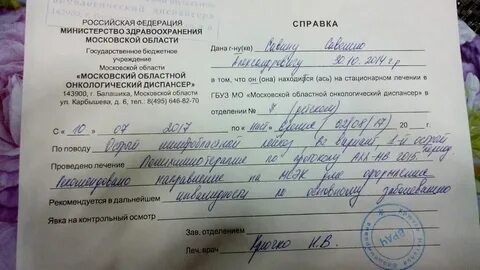 РОССИЙСКАЯ ФЕДЕРАЦИЯ
МИНИСТЕРСТВО ЗДРАВООХРАНЕНИЯ
МОСКОВСКОЙ ОБЛАСТИ
Государственное бюджетное
учреждение
Московской области
«МОСКОВСКИЙ ОБЛАСТНОЙ
ОНКОЛОГИЧЕСКИЙ ДИСПАНСЕР»
143900, г. Балашиха, Московской области
ул. Карбышева, д. 6, тел.: 8(495) 646-82-70
СПРАВКА
Дана г-ну(ке) Савину Савелию
Александровичу 30.10.2014 г.р
в том, что он (она) находится (ась) на стационарном лечении в
ГБУЗ МО «Московский областной онкологический диспансер»
в отделении № 7 (детском)
С «10» 07 2017 по « наст. время (02/08/17) 20 г.
По поводу Острый лимфобластный лейкоз, вариант, 1-й острый период
Проведено лечение Полихимиотерапия по протоколу ALL-MB 2015.
Рекомендовано направление на МСЭК для оформления
Рекомендуется в дальнейшем инвалидности по основному заболеванию
Явка на контрольный осмотр
Зав. отделением
Леч. врач Н.В.
ВРАЧ